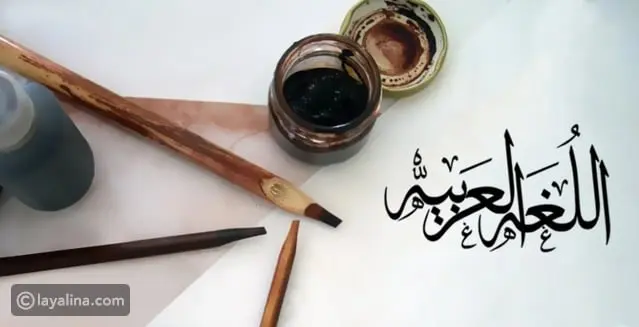 اللُغَه العَربيه
© layalina.com